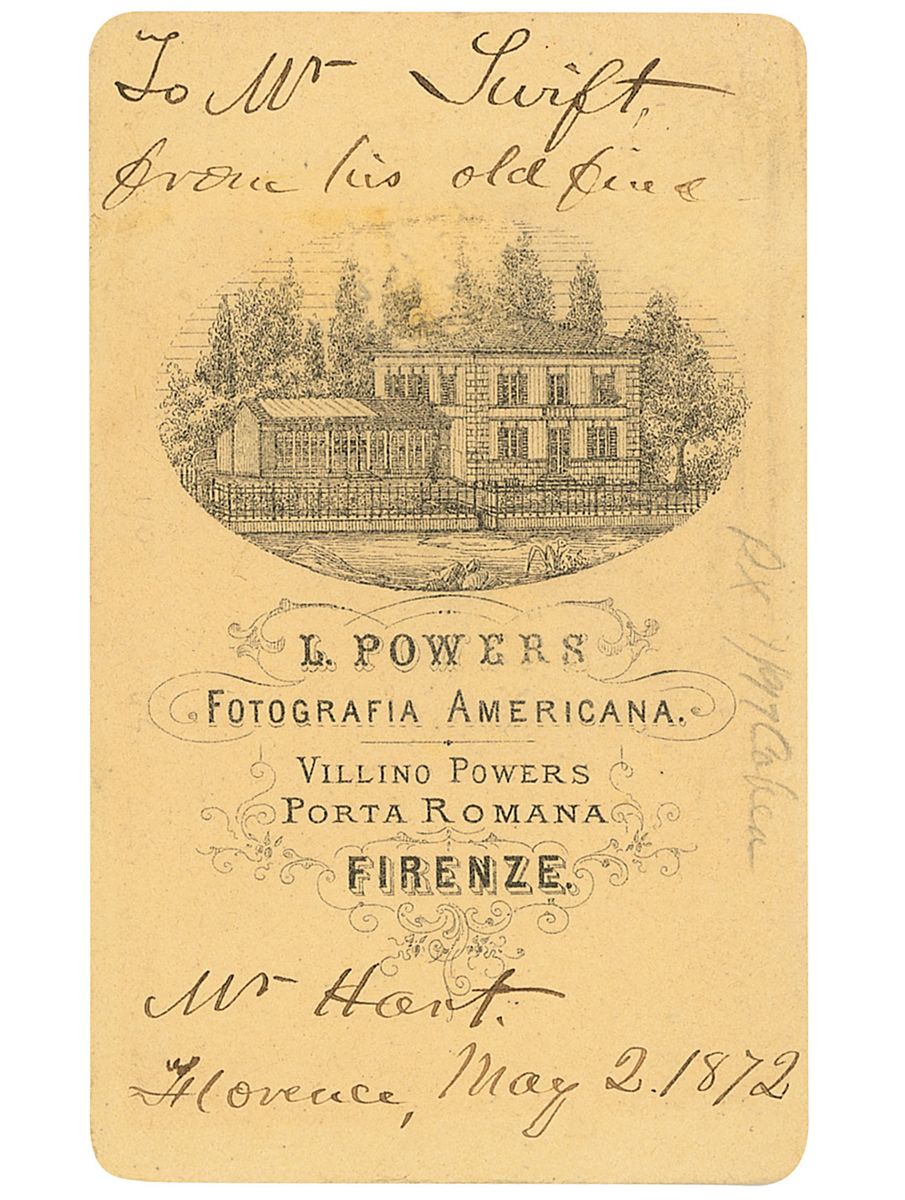 To Mr Swift,
from his old
L. POWERS
FOTOGRAFIA AMERICANA.
VILLINO POWERS
PORTA ROMANA
FIRENZE.
Mr Hart.
Florence, May 2. 1872